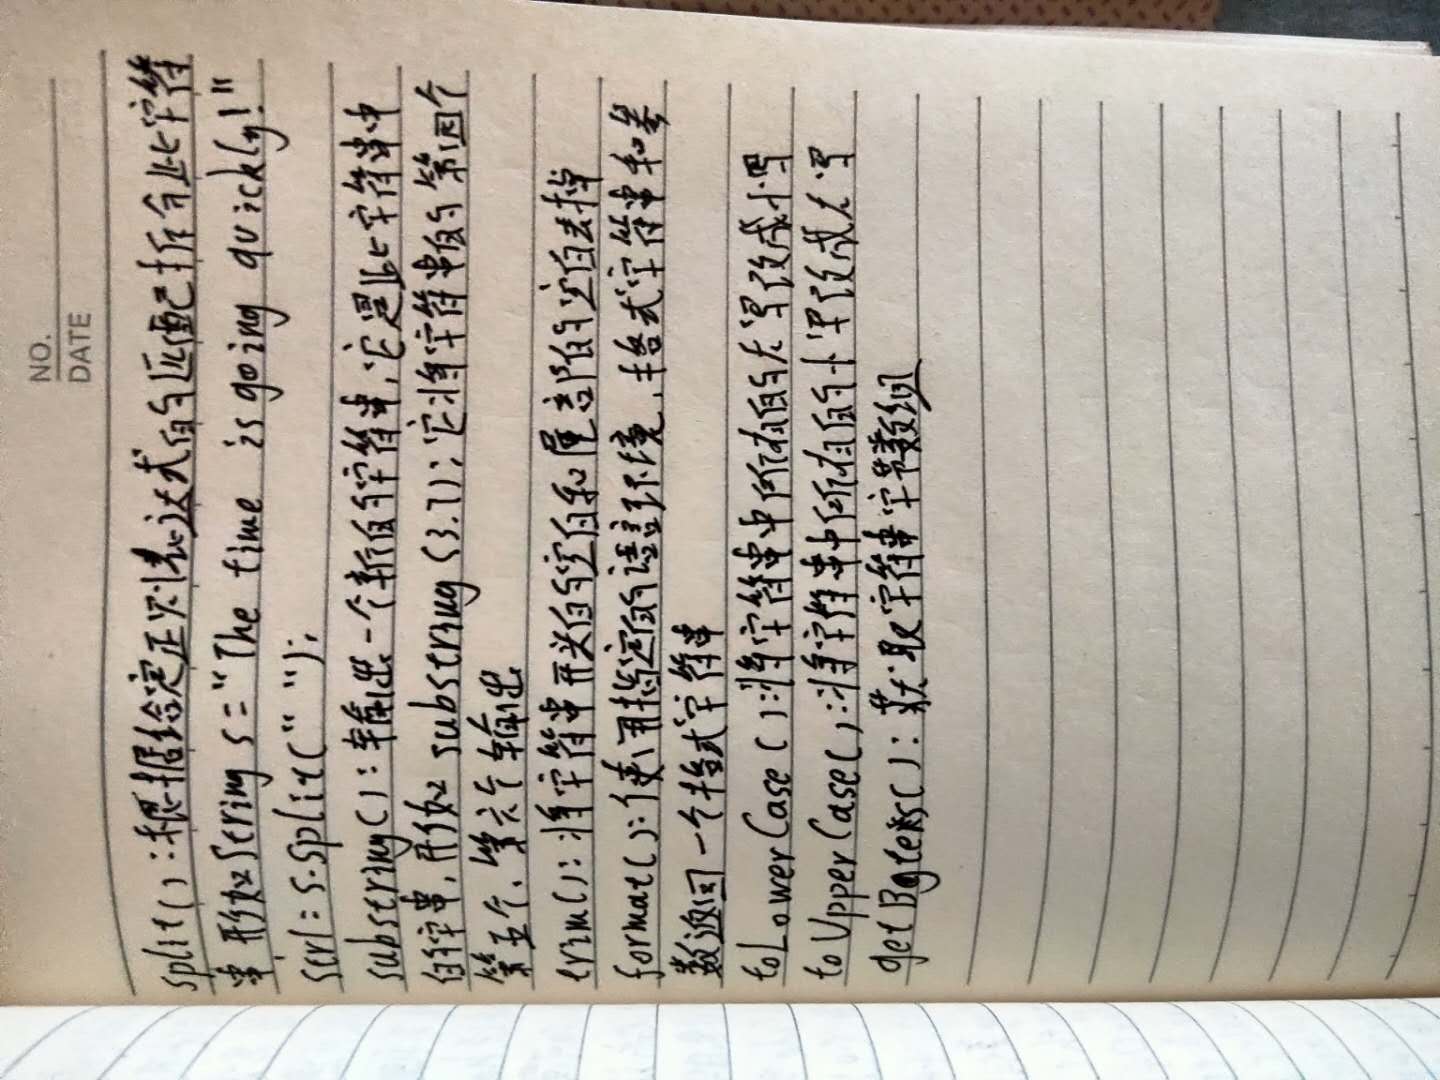 NO.
DATE
split():根据给定正则表达式的匹配拆分此字符
串,形如String s="The time is going quickly!"
str1=s.split(" ");
substring():输出一个新的字符串,它是此字符串中
的子串,形如substring(3.7);它将字符串的第四个
第五个、第六个输出
trim():将字符串开头的空白和尾部的空白去掉
format():使用指定的语言环境,格式字符串和参
数返回一个格式字符串
toLowerCase():将字符串中所有的大写改成小写
toUpperCase():将字符串中所有的小写改成大写
getBytes():获取字符串字节数组